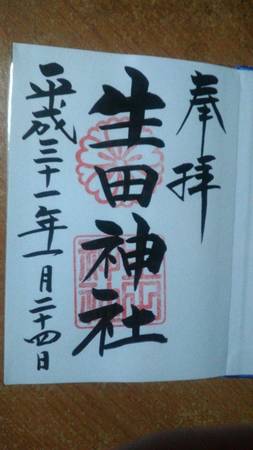 奉拝
生田神社
平成三十一年一月二十四日